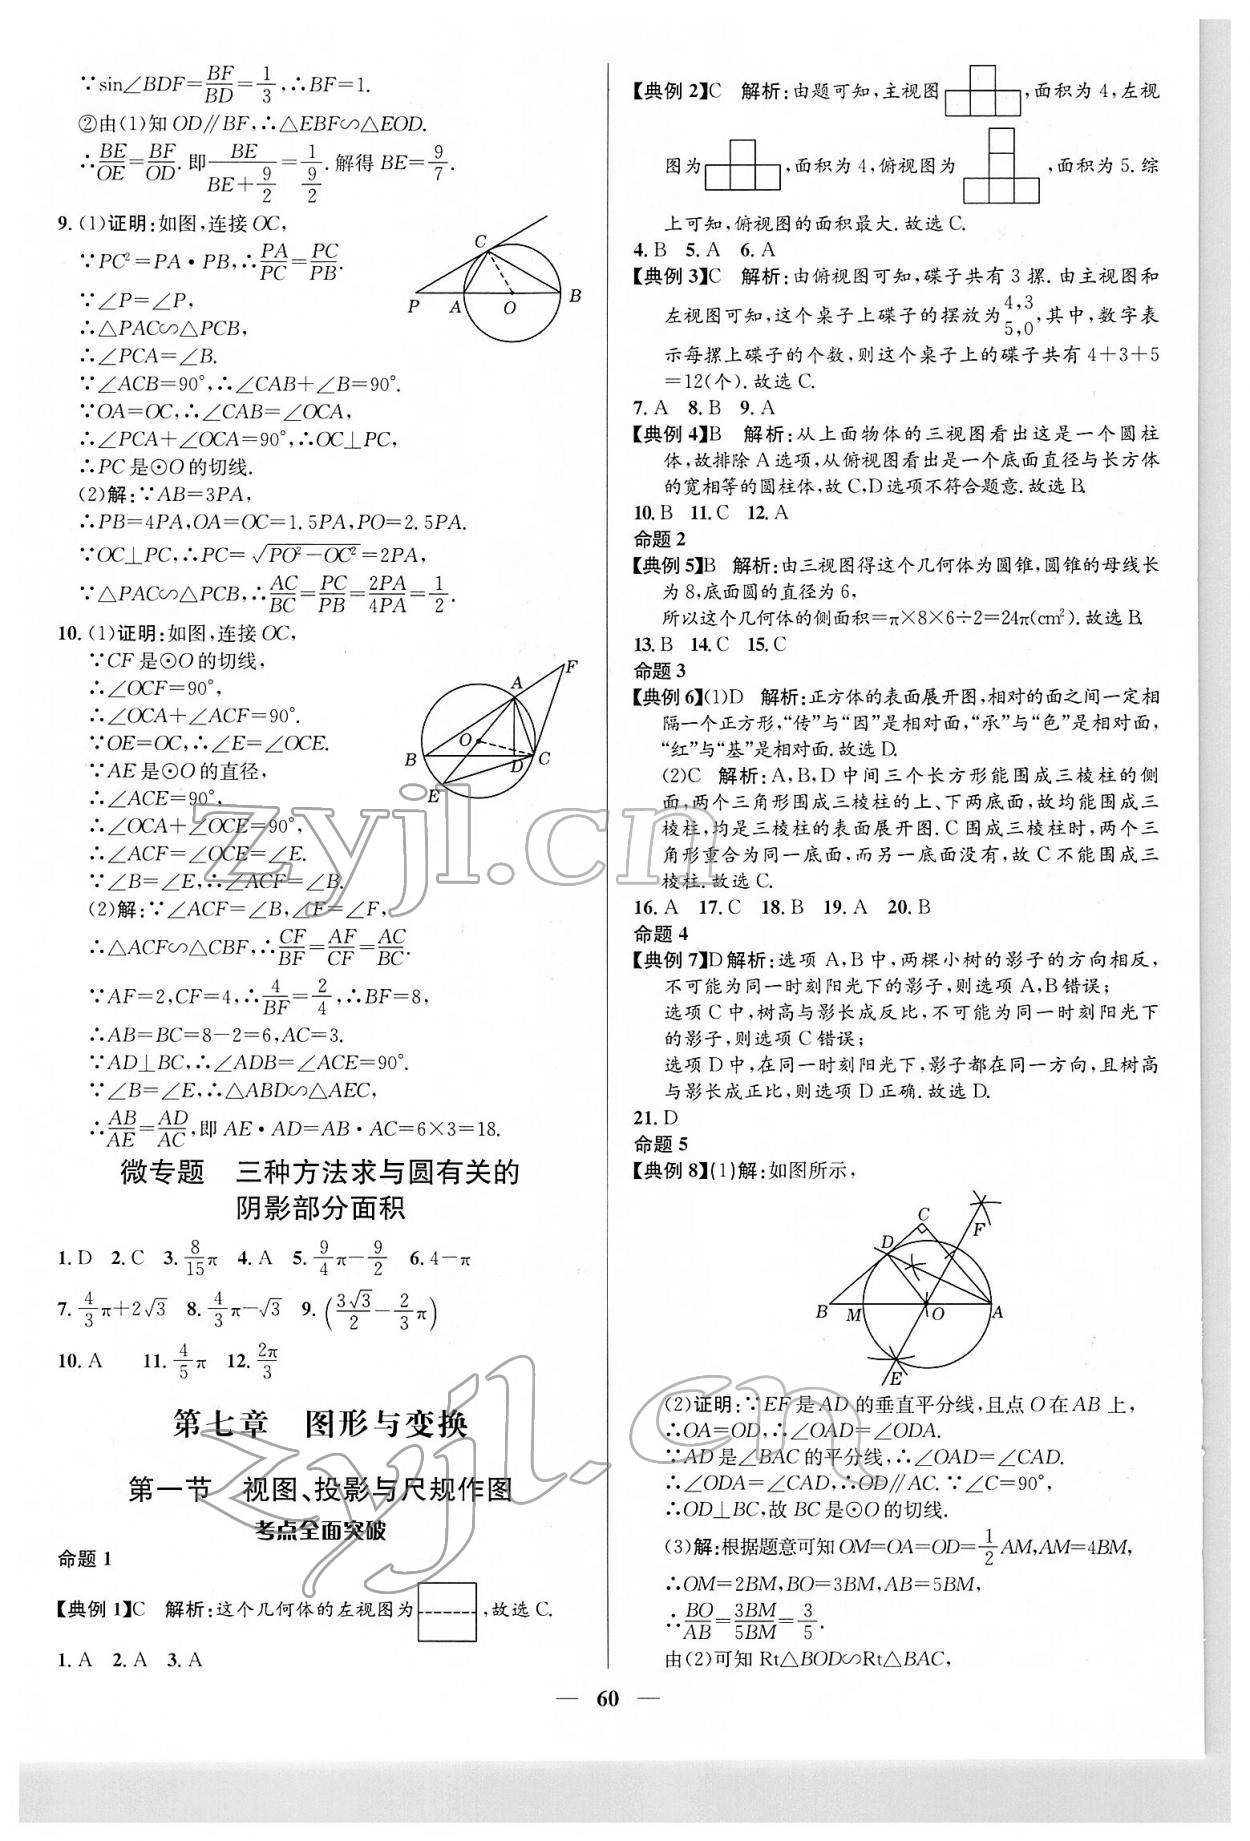 ∵sin∠BDF=BF/BD=1/3,∴BF=1.
②由(1)知OD∥BF,∴△EBF∽△EOD.
∴BE/OE=BF/OD.即BE/(BE+9/2)=1/(9/2).解得BE=9/7.
9.(1)证明:如图,连接OC,
∵PC²=PA·PB,∴PA/PC=PC/PB.
∵∠P=∠P,
∴△PAC∽△PCB,
∴∠PCA=∠B.
∵∠ACB=90°,∴∠CAB+∠B=90°.
∵OA=OC,∴∠CAB=∠OCA,
∴∠PCA+∠OCA=90°,∴OC⊥PC,
∴PC是⊙O的切线.
(2)解:∵AB=3PA,
∴PB=4PA,OA=OC=1.5PA,PO=2.5PA.
∵OC⊥PC,∴PC=√(PO²-OC²)=2PA,
∵△PAC∽△PCB,∴AC/BC=PC/PB=2PA/4PA=1/2.
C
P A O B
10.(1)证明:如图,连接OC,
∵CF是⊙O的切线,
∴∠OCF=90°,
∴∠OCA+∠ACF=90°.
∵OE=OC,∴∠E=∠OCE.
∵AE是⊙O的直径,
∴∠ACE=90°,
∴∠OCA+∠OCE=90°,
∴∠ACF=∠OCE=∠E.
∵∠B=∠E,∴∠ACF=∠B.
(2)解:∵∠ACF=∠B,∠F=∠F,
∴△ACF∽△CBF,∴CF/BF=AF/CF=AC/BC.
∵AF=2,CF=4,∴4/BF=2/4,∴BF=8,
∴AB=BC=8-2=6,AC=3.
∵AD⊥BC,∴∠ADB=∠ACE=90°.
∵∠B=∠E,∴△ABD∽△AEC,
∴AB/AE=AD/AC,即AE·AD=AB·AC=6×3=18.
F
A
O
B D C
E
微专题 三种方法求与圆有关的
阴影部分面积
1.D 2.C 3.8/15π 4.A 5.9/4π-9/2 6.4-π
7.4/3π+2√3 8.4/3π-√3 9.(3√3/2-2/3π)
10.A 11.4/5π 12.2π/3
第七章 图形与变换
第一节 视图、投影与尺规作图
考点全面突破
命题1
【典例1】C 解析:这个几何体的左视图为 ,故选C.
1.A 2.A 3.A
【典例2】C 解析:由题可知,主视图 ,面积为4,左视
图为 ,面积为4,俯视图为 ,面积为5.综
上可知,俯视图的面积最大.故选C.
4.B 5.A 6.A
【典例3】C 解析:由俯视图可知,碟子共有3摞.由主视图和
左视图可知,这个桌子上碟子的摆放为4,3
5,0,其中,数字表
示每摞上碟子的个数,则这个桌子上的碟子共有4+3+5
=12(个).故选C.
7.A 8.B 9.A
【典例4】B 解析:从上面物体的三视图看出这是一个圆柱
体,故排除A选项,从俯视图看出是一个底面直径与长方体
的宽相等的圆柱体,故C,D选项不符合题意.故选B.
10.B 11.C 12.A
命题2
【典例5】B 解析:由三视图得这个几何体为圆锥,圆锥的母线长
为8,底面圆的直径为6,
所以这个几何体的侧面积=π×8×6÷2=24π(cm²).故选B.
13.B 14.C 15.C
命题3
【典例6】(1)D 解析:正方体的表面展开图,相对的面之间一定相
隔一个正方形,“传”与“因”是相对面,“承”与“色”是相对面,
“红”与“基”是相对面.故选D.
(2)C 解析:A,B,D中间三个长方形能围成三棱柱的侧
面,两个三角形围成三棱柱的上、下两底面,故均能围成三
棱柱,均是三棱柱的表面展开图.C围成三棱柱时,两个三
角形重合为同一底面,而另一底面没有,故C不能围成三
棱柱.故选C.
16.A 17.C 18.B 19.A 20.B
命题4
【典例7】D解析:选项A,B中,两棵小树的影子的方向相反,
不可能为同一时刻阳光下的影子,则选项A,B错误;
选项C中,树高与影长成反比,不可能为同一时刻阳光下
的影子,则选项C错误;
选项D中,在同一时刻阳光下,影子都在同一方向,且树高
与影长成正比,则选项D正确.故选D.
21.D
命题5
【典例8】(1)解:如图所示,
C F
D
B M O A
E
(2)证明:∵EF是AD的垂直平分线,且点O在AB上,
∴OA=OD,∴∠OAD=∠ODA.
∵AD是∠BAC的平分线,∴∠OAD=∠CAD.
∴∠ODA=∠CAD,∴OD∥AC.∵∠C=90°,
∴OD⊥BC,故BC是⊙O的切线.
(3)解:根据题意可知OM=OA=OD=1/2AM,AM=4BM,
∴OM=2BM,BO=3BM,AB=5BM,
∴BO/AB=3BM/5BM=3/5.
由(2)可知Rt△BOD∽Rt△BAC,
— 60 —
zyjl.cn
zyjl.cn